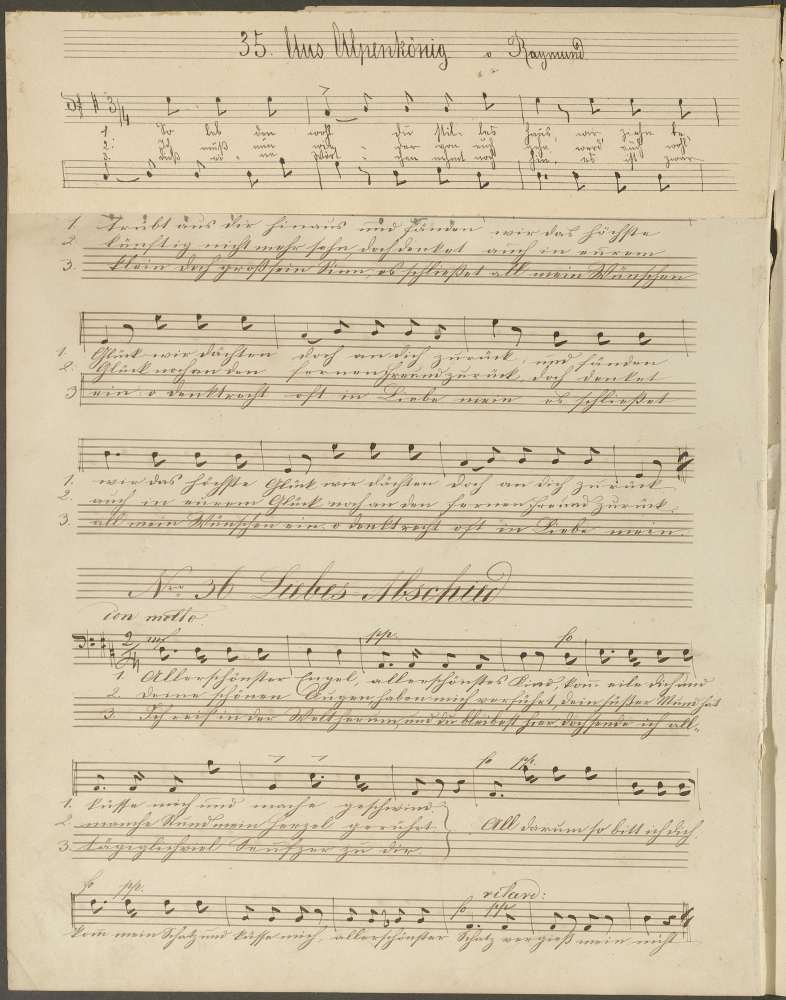 35. Aus Alpenkönig v Raymund
1. So leb den wohl du stil- les Haus, wir ziehn be,
2. Ich muß nun wie- der von euch ziehn, werd euch wohl
3. ein Wört- chen nehmt noch hin, es ist zwar
1. trübt aus dir hinaus und fänden wir das höchste
2. künftig nicht mehr sehn, doch denket auch in eurem
3. klein doch groß sein Sinn, es schließet all mein Wünschen
1. Glück wir dächten doch an dich zurück, und fänden
2. Glück noch an den fernen Freund zurück, doch denket
3 ein o denkt recht oft in Liebe mein es schließet
1. wir das höchste Glück wir dächten doch an dich zurück
2. auch in eurem Glück noch an den fernen Freund zurück.
3. all mein Wünschen ein o denkt recht oft in Liebe mein.
Nro 36 Liebes-Abschied
con motto.
mf pp. fo
1. Allerschönster Engel, allerschönstes Kind, kom eile doch und
2. Deine schönen Augen, haben mich verführt, dein süßer Mund hat
3. Ich reis in der Welt herum, und du bleibest hier, doch sende ich all-
fo pp.
1. küsse mich und mache geschwind
2. manche Stund mein Herzel gerühret All darum so bitt ich dich
3. täglich viel Seufzer zu dir.
fo pp. fo ritard: pp
kom mein Schatz und küsse mich, allerschönster Schatz vergieß mein nicht